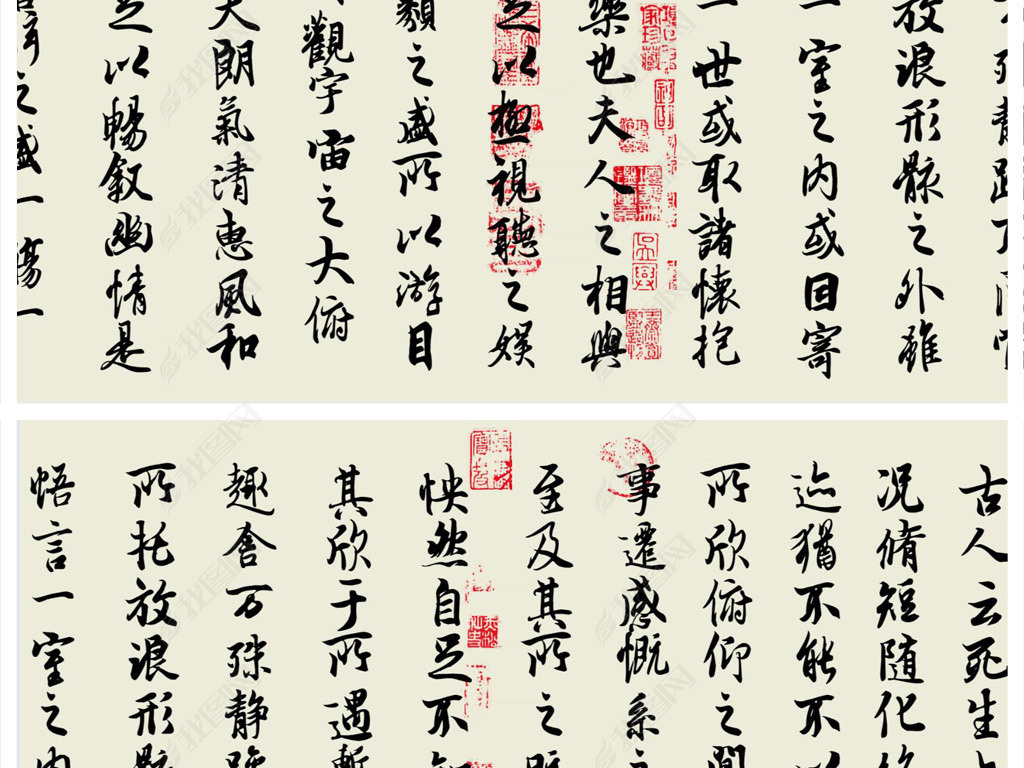 之盛一觴一
足以暢叙幽情是
天朗氣清惠風和
觀宇宙之大俯
類之盛所以游目
足以極視聽之娱
樂也夫人之相與
一世或取諸懷抱
一室之内或因寄
放浪形骸之外雖
殊静躁不
悟言一室之内
所托放浪形骸
趣舍万殊静躁
其欣于所遇暫
怏然自足不知
至及其所之既
事遷感慨系之
所欣俯仰之間
迹猶不能不以
况脩短随化終
古人云死生